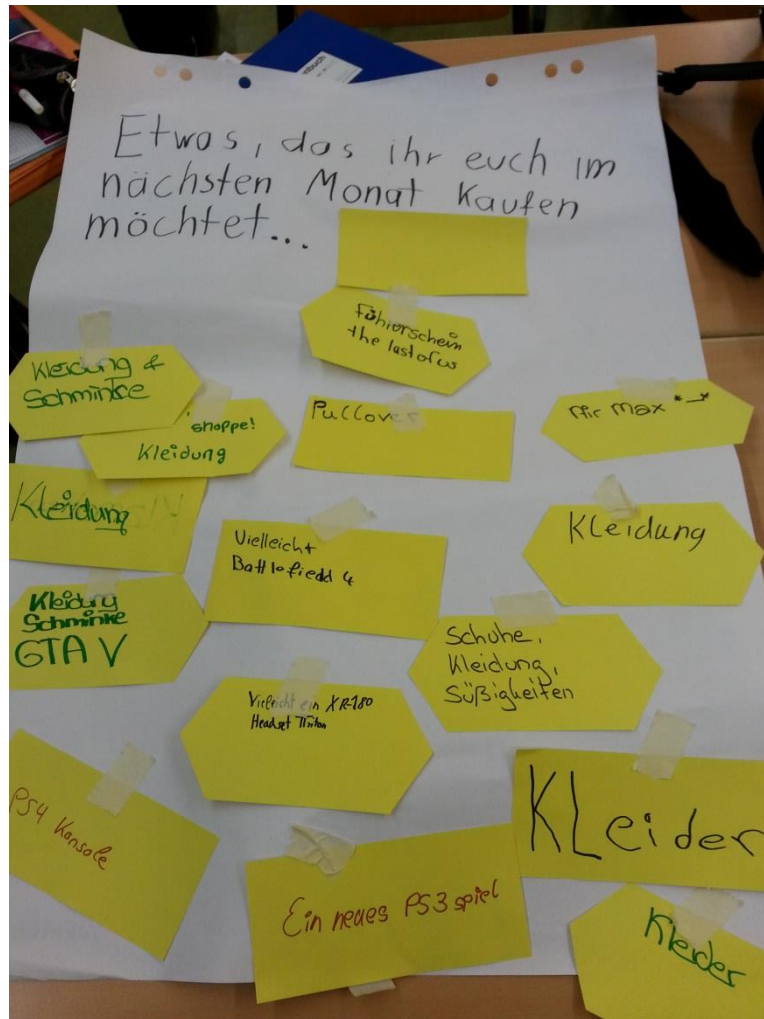 Etwas, das ihr euch im
nächsten Monat Kaufen
möchtet...
Fühlorschein
the last of us
Kleidung &
Schminke
shoppe!
Kleidung
Pullover
Air max *_*
Kleidung
Vielleicht
Battlefiedd 4
Kleidung
Kleidung
Schminke
GTA V
Schuhe,
Kleidung,
Süßigkeiten
Vielricht ein XR-180
Headset Tritton
PS4 Konsole
KLeider
Ein neues PS3 spiel
Kleider